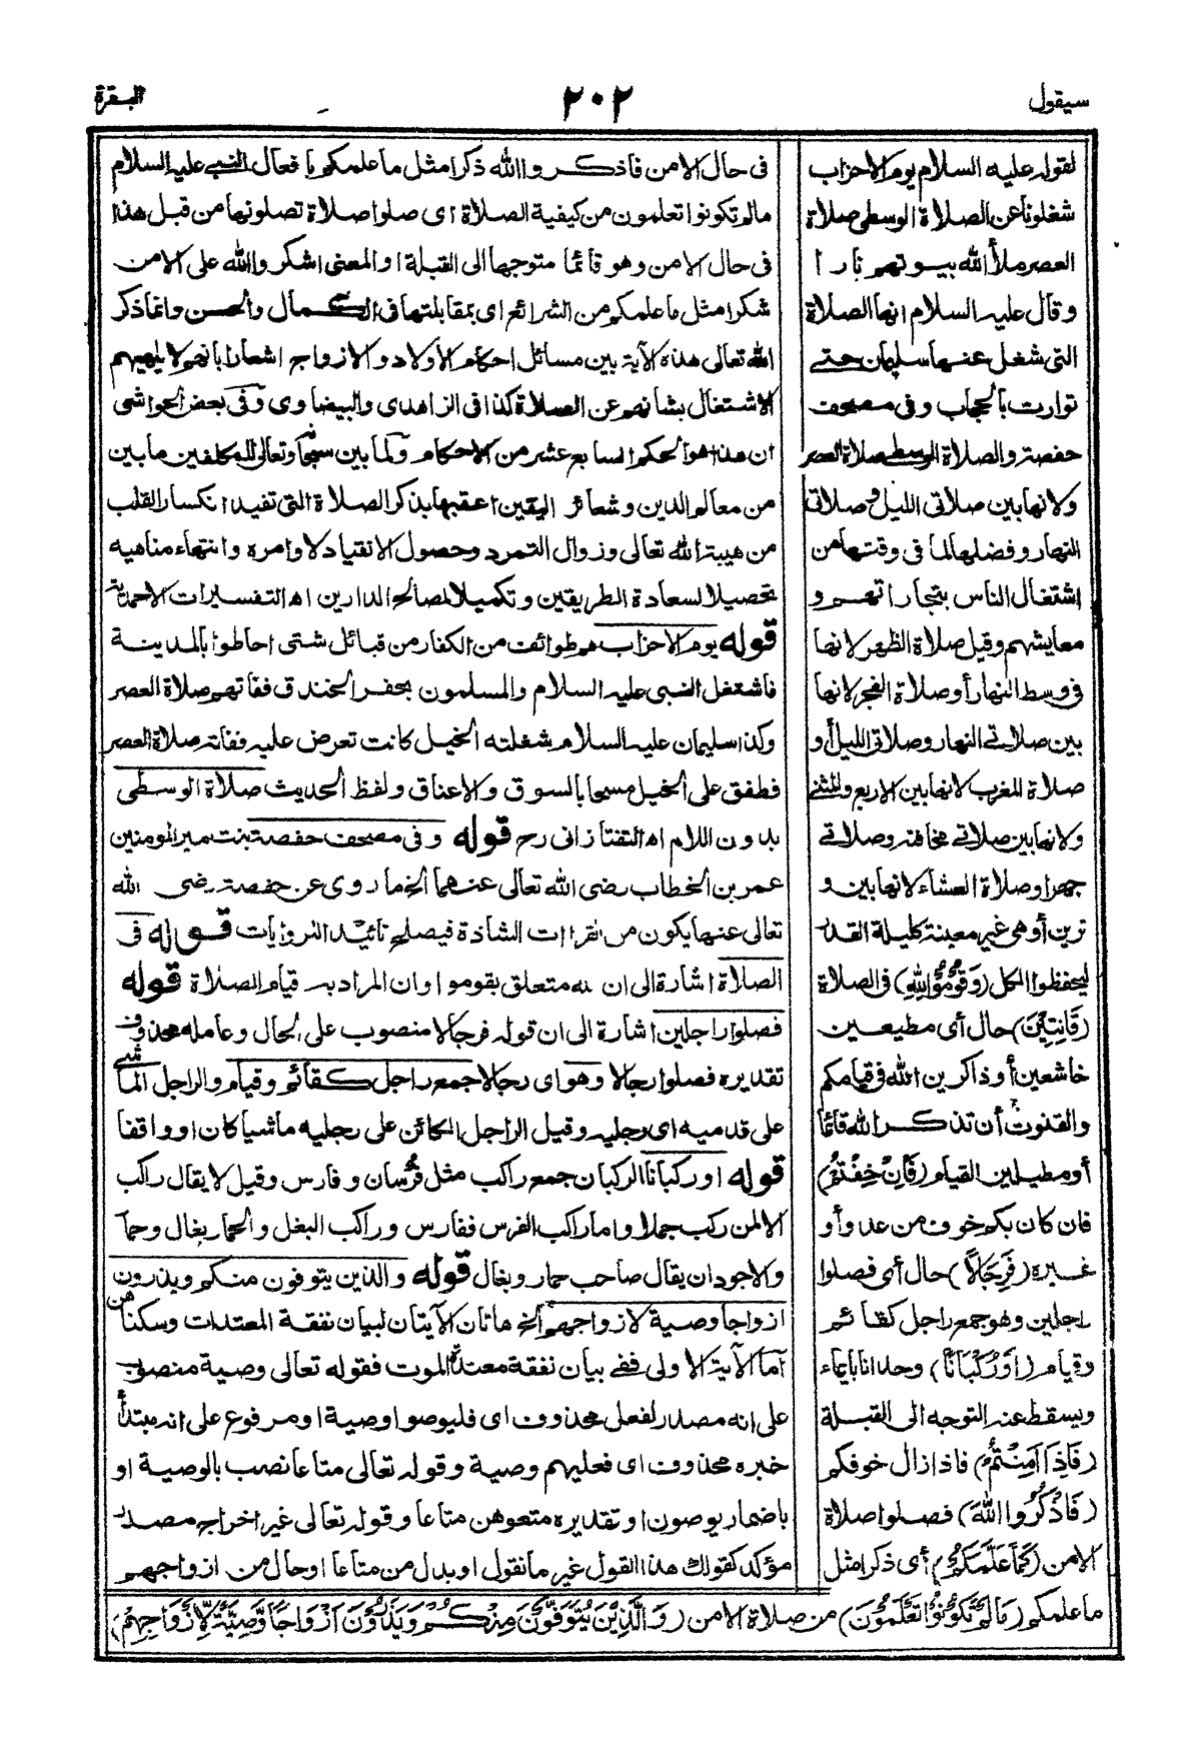 سيقول
٢٠٢
البقرة
لقوله عليه السلام يوم الاحزاب
شغلونا عن الصلاة الوسطى صلاة
العصر ملأ الله بيوتهم نارا
وقال عليه السلام انها الصلاة
التى شغل عنها سليمان حتى
توارت بالحجاب وفى مصحف
حفصة والصلاة الوسطى صلاة العصر
ولانها بين صلاتى الليل وصلاتى
النهار وفضلها لما فى وقتها من
اشتغال الناس بتجاراتهم و
معايشهم وقيل صلاة الظهر لانها
فى وسط النهار أو صلاة الفجر لانها
بين صلاتى النهار وصلاتى الليل أو
صلاة المغرب لانها بين الاربع والمثنى
ولانها بين صلاتى مخافتة وصلاتى
جهر او صلاة العشاء لانها بين و
ترين أو هى غير معينة كليلة القدر
ليحفظوا الكل (وَقُومُوْا لِلّٰهِ) فى الصلاة
(قَانِتِيْنَ) حال أى مطيعين
خاشعين أو ذاكرين الله فى قيامكم
والقنوت أن تذكر الله قائما
أو مطيلين القيام (فَاِنْ خِفْتُمْ)
فان كان بكم خوف من عدو أو
غيره (فَرِجَالًا) حال أى فصلوا
راجلين وهو جمع راجل كقائم
وقيام (اَوْ رُكْبَانًا) وحدانا بايماء
ويسقط عنه التوجه الى القبلة
(فَاِذَا اَمِنْتُمْ) فاذا زال خوفكم
(فَاذْكُرُوا اللّٰهَ) فصلوا صلاة
الامن (كَمَا عَلَّمَكُمْ) أى ذكرا مثل
ما علمكم (مَا لَمْ تَكُوْنُوْا تَعْلَمُوْنَ) من صلاة الامن (وَالَّذِيْنَ يُتَوَفَّوْنَ مِنْكُمْ وَيَذَرُوْنَ اَزْوَاجًا وَّصِيَّةً لِّاَزْوَاجِهِمْ)
فى حال الامن فاذكروا الله ذكرا مثل ما علمكم بافعال النبى عليه السلام
ما لم تكونوا تعلمون من كيفية الصلاة اى صلوا صلاة تصلونها من قبل هذا
فى حال الامن وهو قائما متوجها الى القبلة او المعنى اشكروا الله على الامن
شكرا مثل ما علمكم من الشرائع اى بمقابلتها فى الكمال والحسن وانما ذكر
الله تعالى هذه الآية بين مسائل احكام الأولاد والازواج اشعارا بانهم لا يلهيهم
الاشتغال بشانهم عن الصلاة كذا فى الزاهدى والبيضاوى وفى بعض الحواشى
ان هذا هو الحكم السابع عشر من الاحكام ولما بين سبحانه وتعالى للمكلفين ما بين
من معالم الدين وشعائر اليقين اعقبها بذكر الصلاة التى تفيد انكسار القلب
من هيبة الله تعالى وزوال التمرد وحصول الانقياد لاوامره وانتهاء مناهيه
تحصيلا لسعادة الطريقين وتكميلا لمصالح الدارين اه التفسيرات الاحمدية
قوله يوم الاحزاب هم طوائف من الكفار من قبائل شتى احاطوا بالمدينة
فاشتغل النبى عليه السلام والمسلمون بحفر الخندق ففاتهم صلاة العصر
وكذا سليمان عليه السلام شغلته الخيل كانت تعرض عليه ففاته صلاة العصر
فطفق على الخيل مسحا بالسوق والاعناق ولفظ الحديث صلاة الوسطى
بدون اللام اه التفتازانى رح قوله وفى مصحف حفصة بنت امير المومنين
عمر بن الخطاب رضى الله تعالى عنهما الخ ما روى عن حفصة رضى الله
تعالى عنها يكون من القراات الشاذة فيصلح تائيد الروايات قوله فى
الصلاة اشارة الى ان لله متعلق بقوموا وان المراد به قيام الصلاة قوله
فصلوا راجلين اشارة الى ان قوله فرجالا منصوب على الحال وعامله محذوف
تقديره فصلوا رجالا وهو اى رجالا جمع راجل كقائم وقيام والراجل الماشى
على قدميه اى رجليه وقيل الراجل الكائن على رجليه ماشيا كان او واقفا
قوله او ركبانا الركبان جمع راكب مثل فرسان وفارس وقيل لا يقال راكب
الا لمن ركب جملا واما راكب الفرس ففارس وراكب البغل والحمار بغال وحمار
والاجود ان يقال صاحب حمار وبغال قوله والذين يتوفون منكم ويذرون
ازواجا وصية لازواجهم الخ هاتان الآيتان لبيان نفقة المعتدات وسكناهن
اما الآية الاولى ففى بيان نفقة معتدة الموت فقوله تعالى وصية منصوب
على انه مصدر لفعل محذوف اى فليوصوا وصية او مرفوع على انه مبتدأ
خبره محذوف اى فعليهم وصية وقوله تعالى متاعا نصب بالوصية او
باضمار يوصون او تقديره متعوهن متاعا وقوله تعالى غير اخراج مصدر
مؤكد كقولك هذا القول غير ما نقول او بدل من متاعا او حال من ازواجهم